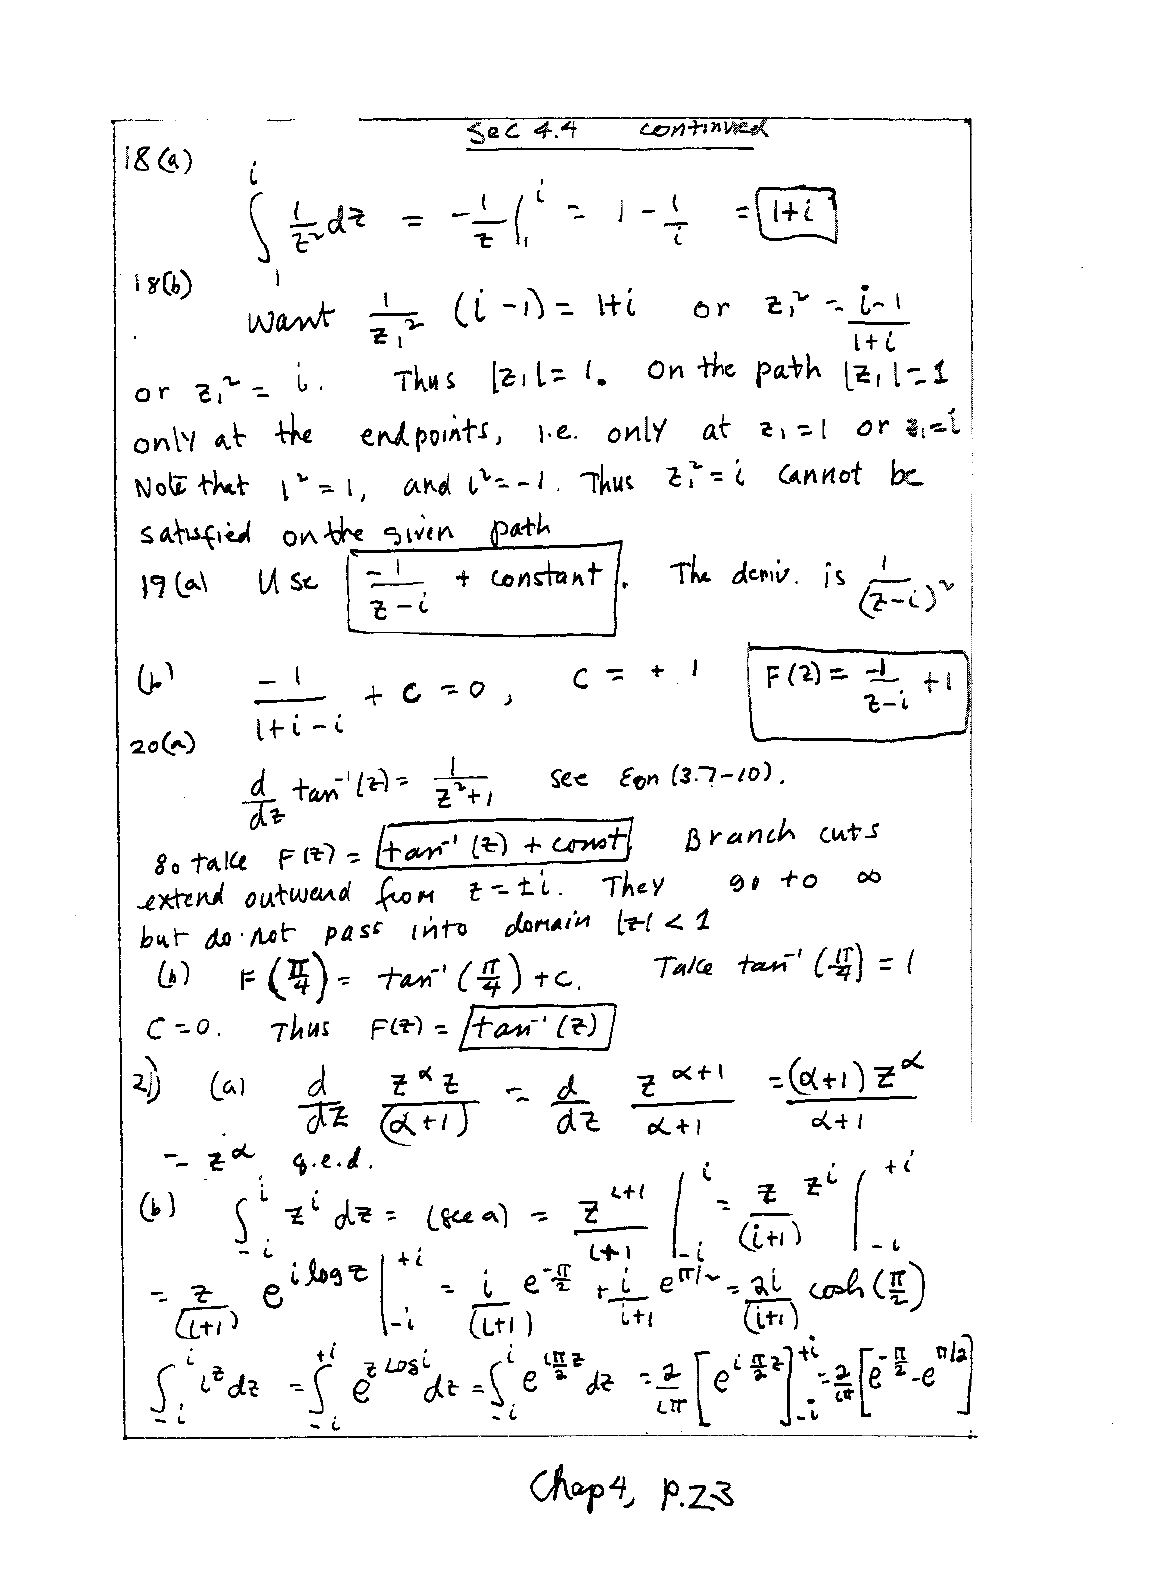 Sec 4.4 continued
18(a)
∫₁ⁱ 1/z² dz = -1/z |₁ⁱ = 1 - 1/i = 1+i
18(b)
Want 1/z₁² (i-1) = 1+i or z₁² = (i-1)/(1+i)
or z₁² = i. Thus |z₁| = 1. On the path |z₁| = 1
only at the endpoints, i.e. only at z₁=1 or z₁=i
Note that 1² = 1, and i² = -1. Thus z₁² = i cannot be
satisfied on the given path
19(a) Use -1/(z-i) + constant. The deriv. is 1/(z-i)²
(b) -1/(1+i-i) + c = 0, C = +1 F(z) = -1/(z-i) + 1
20(a)
d/dz tan⁻¹(z) = 1/(z²+1) see Eqn (3.7-10).
So take F(z) = tan⁻¹(z) + const. Branch cuts
extend outward from z = ±i. They go to ∞
but do not pass into domain |z| < 1
(b) F(π/4) = tan⁻¹(π/4) + c. Take tan⁻¹(π/4) = 1
C = 0. Thus F(z) = tan⁻¹(z)
21) (a) d/dz z^α z/(α+1) = d/dz z^(α+1)/(α+1) = (α+1) z^α/(α+1)
= z^α q.e.d.
(b) ∫₋ᵢⁱ zⁱ dz = (see a) = z^(i+1)/(i+1) |₋ᵢⁱ = z zⁱ/(i+1) |₋ᵢ⁺ⁱ
= z/(i+1) e^(i log z) |₋ᵢ⁺ⁱ = i/(i+1) e^(-π/2) + i/(i+1) e^(π/2) = 2i/(i+1) cosh(π/2)
∫₋ᵢⁱ i^z dz = ∫₋ᵢ⁺ⁱ e^(z Log i) dz = ∫₋ᵢⁱ e^(iπz/2) dz = 2/(iπ) [e^(i(π/2)z)]₋ᵢ⁺ⁱ = 2/(iπ) [e^(-π/2) - e^(π/2)]
Chap 4, p.23